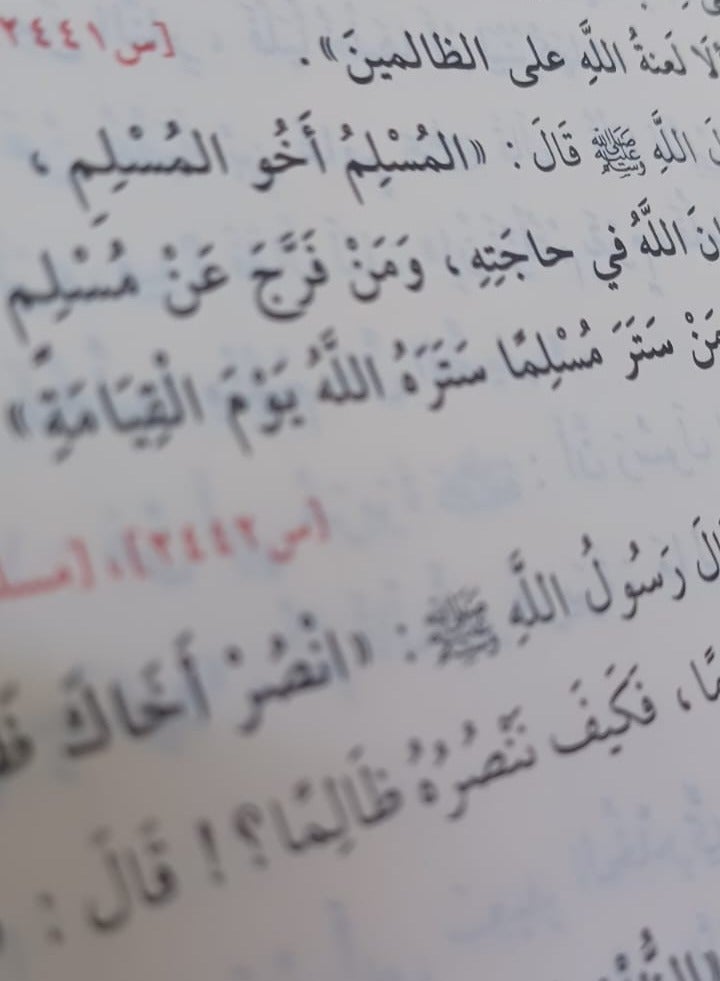 أَلَا لَعنةُ اللَّهِ على الظالمينَ». [س٢٤٤١
اللَّهِ ﷺ قَالَ: «المُسْلِمُ أَخُو المُسْلِمِ،
اللَّهُ في حاجَتِهِ، وَمَنْ فَرَّجَ عَنْ مُسْلِمٍ
مَنْ سَتَرَ مُسْلِمًا سَتَرَهُ اللَّهُ يَوْمَ الْقِيَامَةِ»
[س٢٤٤٢]،
رَسُولُ اللَّهِ ﷺ: «انْصُرْ أَخَاكَ
فَكَيفَ نَنْصُرُهُ ظَالِمًا؟! قَالَ: